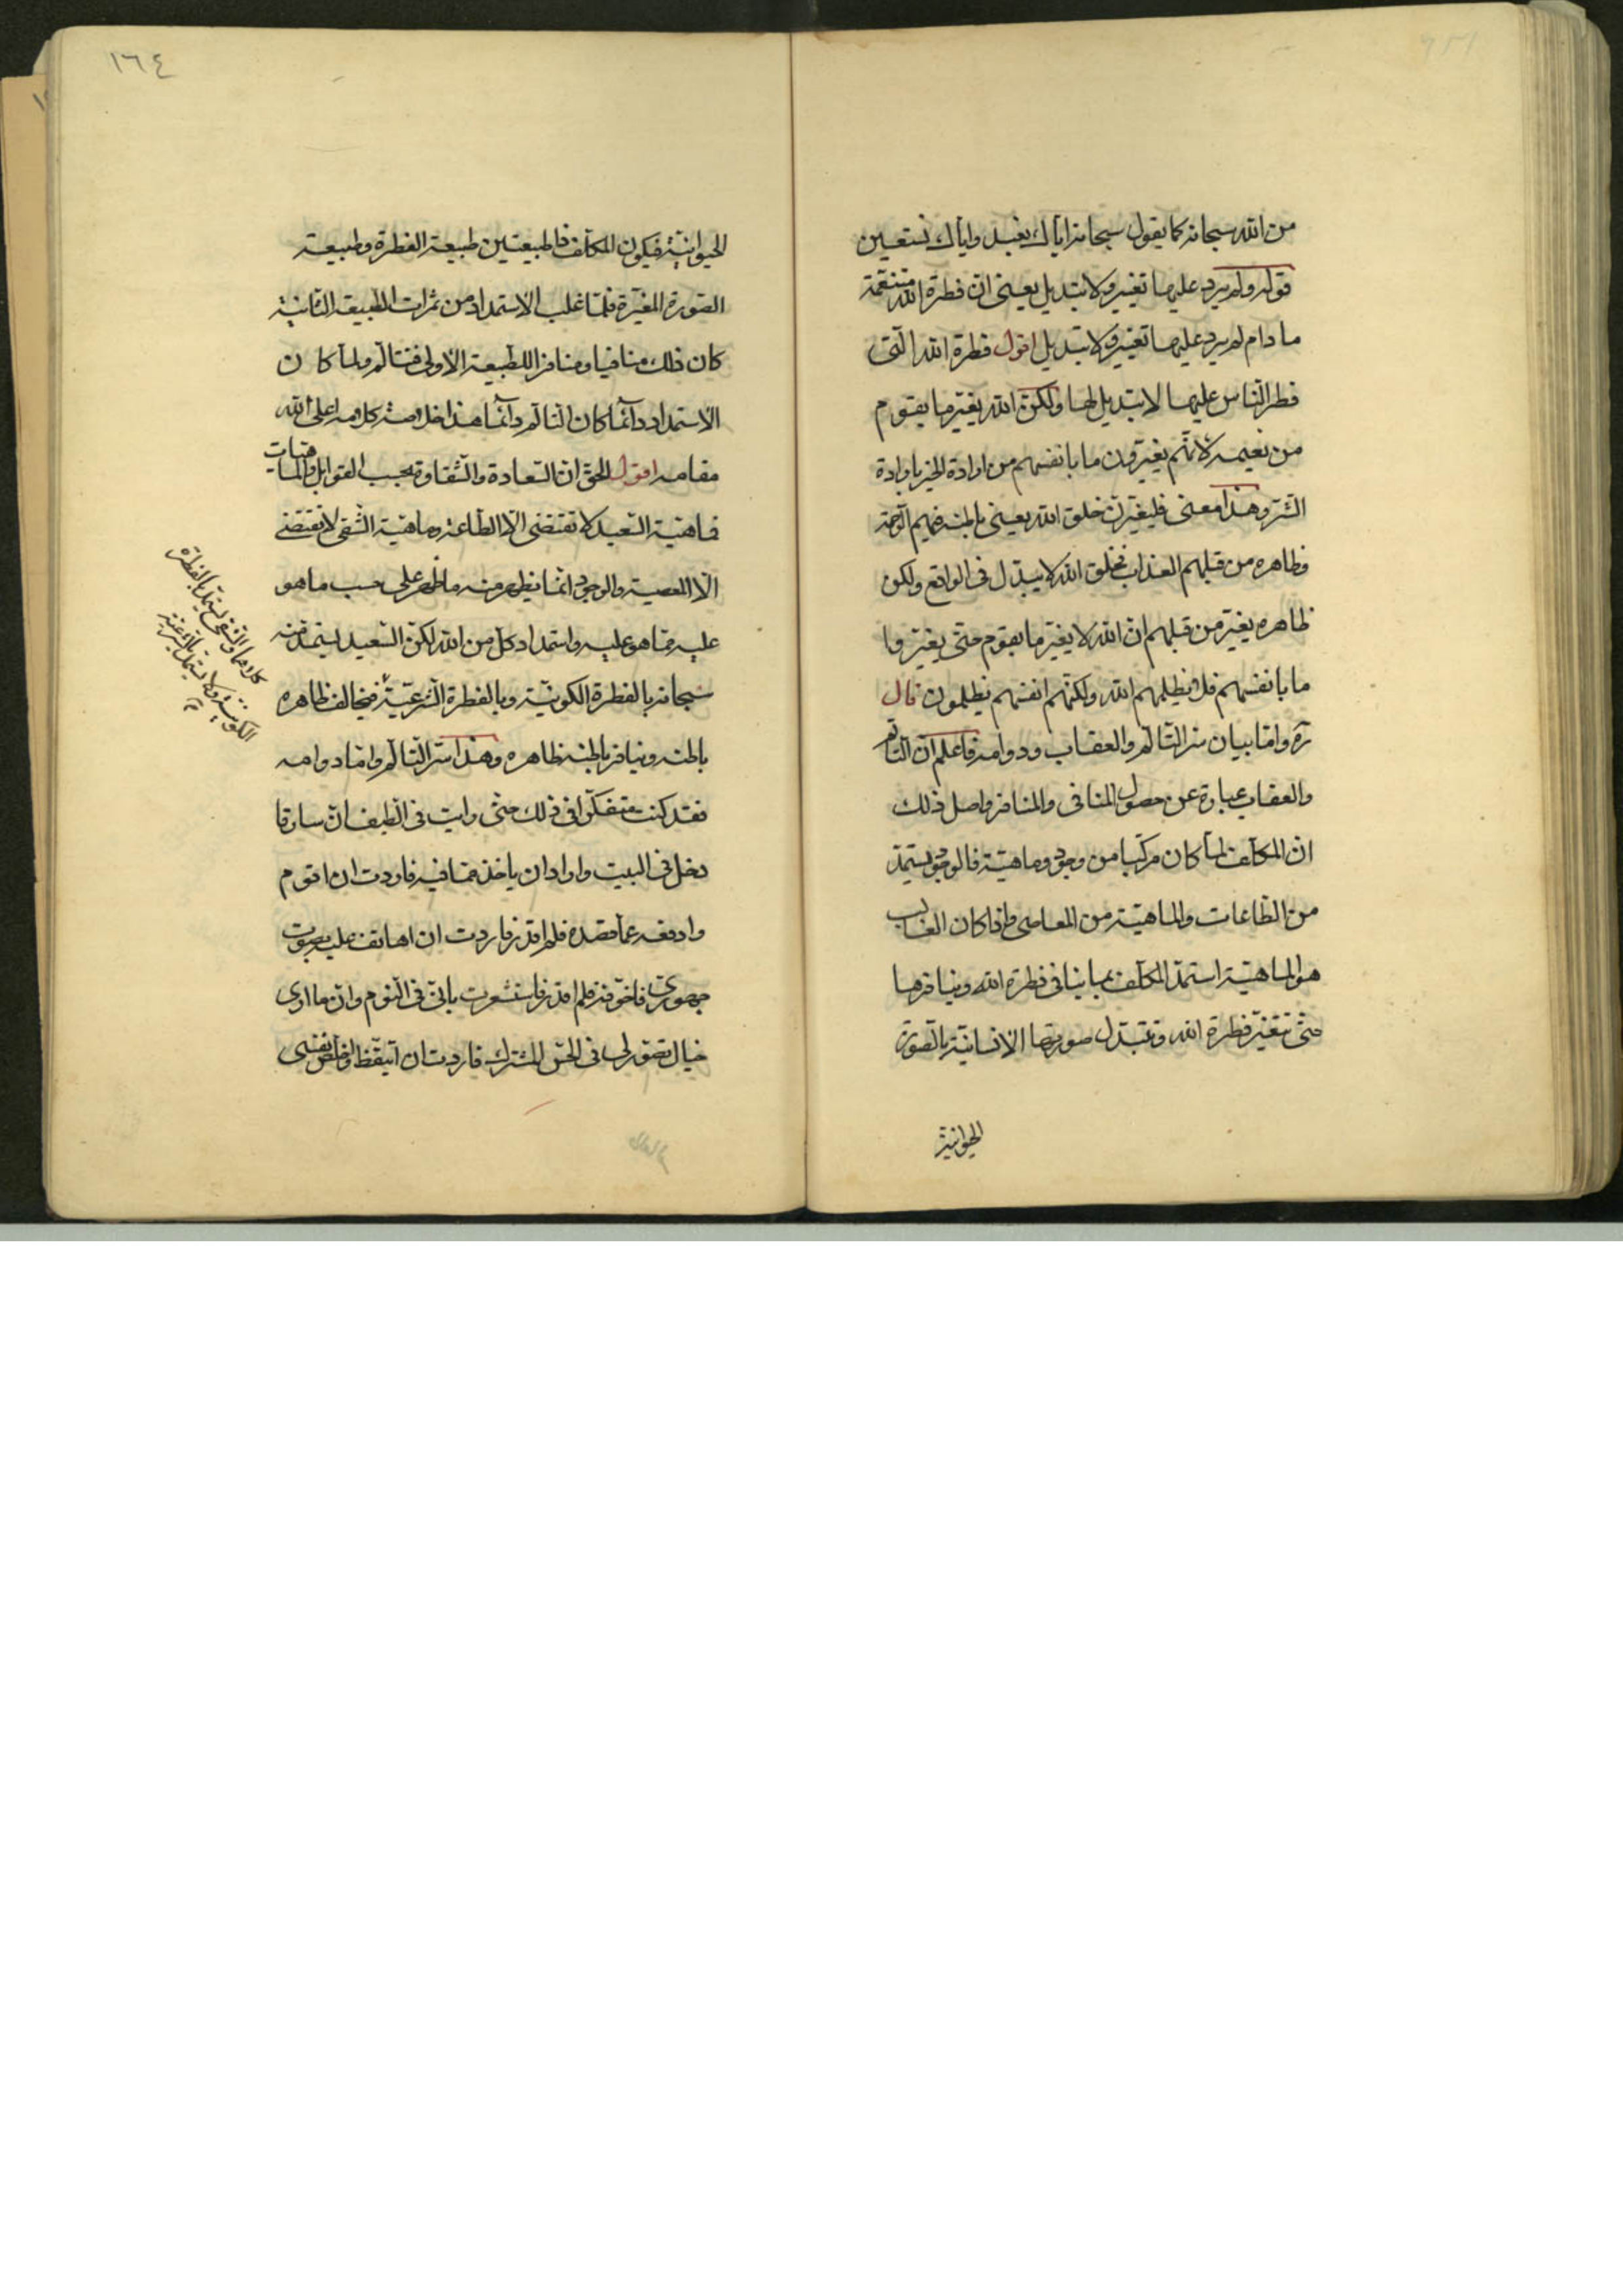 من الله سبحانه كما يقول سبحانه اياك نعبد واياك نستعين
قوله ولم يرد عليها تغيير ولا تبديل يعنى ان فطرة الله متنعّمة
ما دام لم يرد عليها تغيير ولا تبديل اقول فطرة الله الّتى
فطر النّاس عليها لا تبديل لها ولكنّ الله يغيّر ما بقوم
من نعيمه لانّهم يغيّرون ما بانفسهم من ارادة الخير بارادة
الشّر وهذا معنى فليغيّرنّ خلق الله يعنى باطنه فيهم الرّحمة
وظاهره من قبلهم العذاب فخلق الله لا يبدّل فى الواقع ولكن
ظاهره يغيّر من قبلهم انّ الله لا يغيّر ما بقوم حتى يغيّروا
ما بانفسهم فلم يظلمهم الله ولكنّهم انفسهم يظلمون قال
ره وامّا بيان سرّ التّالّم والعقاب ودوامه فاعلم انّ التّالّم
والعقاب عبارة عن حصول المنافى والمنافر واصل ذلك
ان المكلّف لمّا كان مركّبا من وجود وماهيّة فالوجود يستمدّ
من الطّاعات والماهيّة من المعاصى واذا كان الغالب
هو الماهيّة استمدّ المكلّف بما ينافى فطرة الله وينافرها
حتّى تتغيّر فطرة الله وتتبدّل صورتها الانسانيّة بالصّورة
الحيوانيّة
١٦٤
الحيوانيّة فيكون المكلّف ذا طبيعتين طبيعة الفطرة وطبيعة
الصّورة المغيّرة فلمّا غلب الاستمداد من ثمرات الطّبيعة الثّانية
كان ذلك منافيا ومنافرا للطّبيعة الاولى فتتالّم ولمّا كان
الاستمداد دائما كان التّالّم دائما هذا خلاصة كلامه اعلى الله
مقامه اقول الحقّ انّ السّعادة والشّقاوة بحسب القوابل والماهيّات
فماهيّة السّعيد لا تقتضى الّا الطّاعة وماهيّة الشّقى لا تقتضى
الّا المعصية والوجود انّما يظهر منه ما ظهر على حسب ما هو
عليه ممّا هو عليه واستمداد كلّ من الله لكنّ السّعيد يستمدّ منه
سبحانه بالفطرة الكونيّة وبالفطرة الشّرعيّة فيخالف ظاهره
باطنه وينافر باطنه ظاهره وهذا سرّ التّالّم وامّا دوامه
فقد كنت متفكّرا فى ذلك حتّى رايت فى الطّيف انّ سارقا
دخل فى البيت واراد ان ياخذ ممّا فيه فاردت ان اقوم
وادفعه عمّا قصده فلم اقدر فاردت ان اهاتف عليه بصوت
جهورى فاخوّفه فلم اقدر فاستشعرت بانّى فى النّوم وانّ ما ارى
خيال تصوّر لى فى الحسّ المشترك فاردت ان اتيقّظ واخلّص نفسى
كلاهما والشّقى يستمدّ بالفطرة
الكونيّة ولا يستمدّ بالشّرعيّة